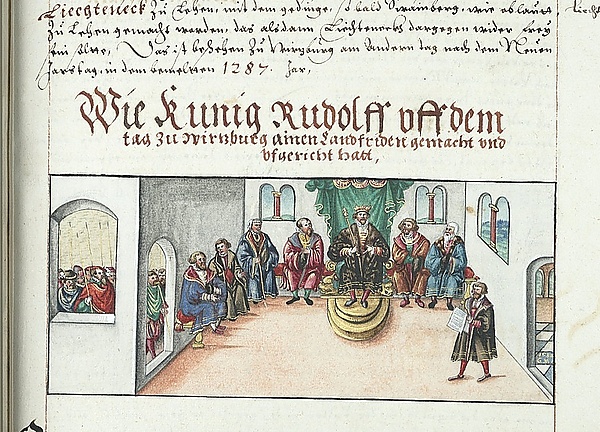 Liechteneck zu Lehen, mit dem gedinge, so bald Swainberg, wie oblaut
zu Lehen gemacht werden, das alsdann Liechteneck dargegen wider frey
sein solte, Das ist beschehen zu Wirtzburg am Andern tag nach dem Neuen
Jarstag, in dem bemelten 1287. Jar,
Wie Kunig Rudolff uff dem
tag zu Wirtzburg ainen Landfriden gemacht und
ufgericht hatt,